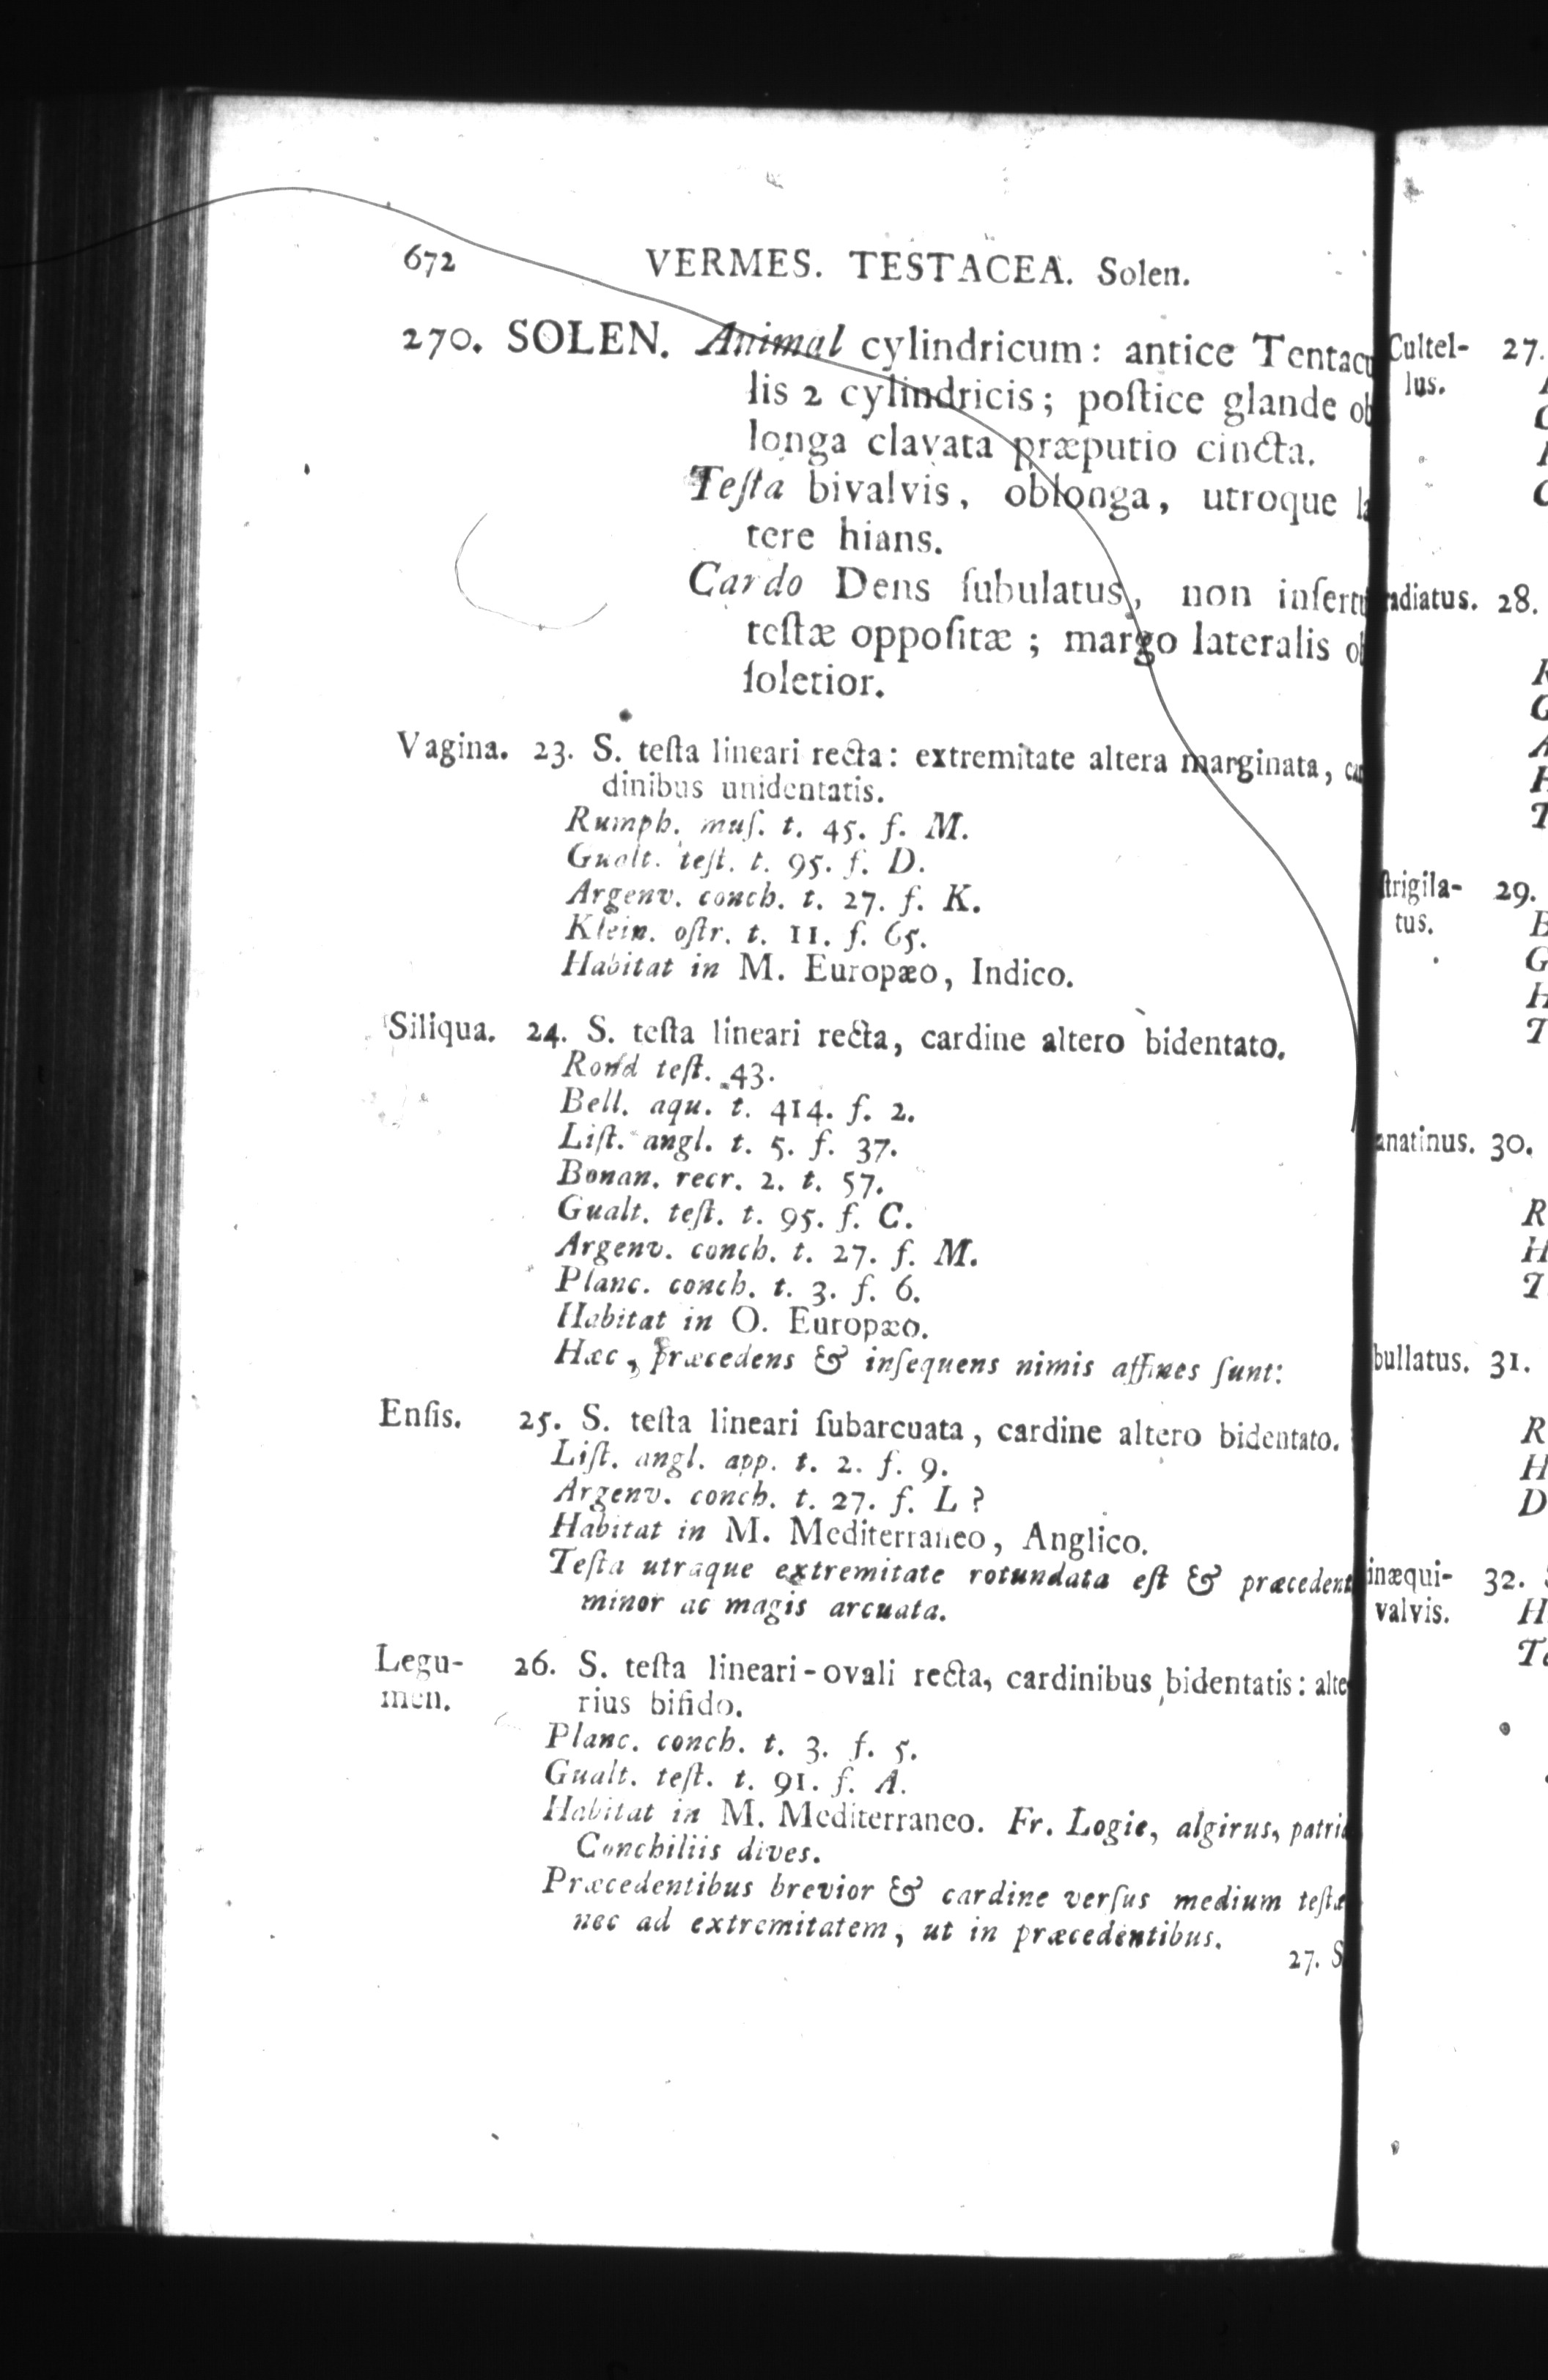 672 VERMES. TESTACEA. Solen.
270. SOLEN. Animal cylindricum: antice Tentacu
lis 2 cylindricis; poſtice glande ob
longa clavata præputio cincta.
Teſta bivalvis, oblonga, utroque la
tere hians.
Cardo Dens ſubulatus, non inſertu
teſtæ oppoſitæ; margo lateralis ob
ſoletior.
Vagina. 23. S. teſta lineari recta: extremitate altera marginata, car
dinibus unidentatis.
Rumph. muſ. t. 45. f. M.
Gualt. teſt. t. 95. f. D.
Argenv. conch. t. 27. f. K.
Klein. oſtr. t. 11. f. 65.
Habitat in M. Europæo, Indico.
Siliqua. 24. S. teſta lineari recta, cardine altero bidentato.
Rond teſt. 43.
Bell. aqu. t. 414. f. 2.
Liſt. angl. t. 5. f. 37.
Bonan. recr. 2. t. 57.
Gualt. teſt. t. 95. f. C.
Argenv. conch. t. 27. f. M.
Planc. conch. t. 3. f. 6.
Habitat in O. Europæo.
Hæc, præcedens & inſequens nimis affines ſunt:
Enſis. 25. S. teſta lineari ſubarcuata, cardine altero bidentato.
Liſt. angl. app. t. 2. f. 9.
Argenv. conch. t. 27. f. L?
Habitat in M. Mediterraneo, Anglico.
Teſta utraque extremitate rotundata eſt & præcedent
minor ac magis arcuata.
Legu- 26. S. teſta lineari-ovali recta, cardinibus bidentatis: alte
men. rius bifido.
Planc. conch. t. 3. f. 5.
Gualt. teſt. t. 91. f. A.
Habitat in M. Mediterraneo. Fr. Logie, algirus, patria
Conchiliis dives.
Præcedentibus brevior & cardine verſus medium teſtæ
nec ad extremitatem, ut in præcedentibus.
27. S
Cultel- 27.
lus.
C
C
adiatus. 28.
R
G
A
H
T
ſtrigila- 29.
tus. B
G
H
T
anatinus. 30.
R
H
T
bullatus. 31.
R
H
D
inæqui- 32.
valvis. H
Te